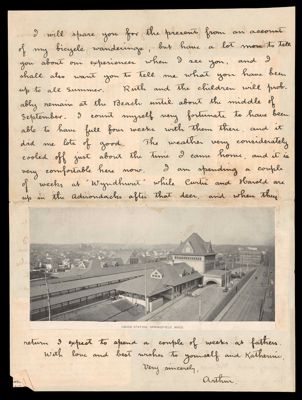 I will spare you for the present from an account
of my bicycle wanderings, but have a lot more to tell
you about our experiences when I see you, and I
shall also want you to tell me what you have been
up to all summer. Ruth and the children will prob-
ably remain at the Beach until about the middle of
September. I count myself very fortunate to have been
able to have full four weeks with them there, and it
did me lots of good. The weather very considerably
cooled off just about the time I came home, and it is
very comfortable here now. I am spending a couple
of weeks at "Wyndhurst" while Curtis and Harold are
up in the Adirondacks after that deer, and when they
UNION STATION, SPRINGFIELD, MASS.
return I expect to spend a couple of weeks at fathers.
With love and best wishes to yourself and Katherine,
Very sincerely,
Arthur